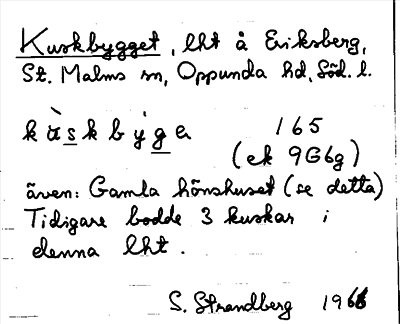 Kuskbygget, lht å Eriksberg,
St. Malms sn, Oppunda hd, Söd. l.
kùskbýga 165
(ek 9G6g)
även: Gamla hönshuset (se detta)
Tidigare bodde 3 kuskar i
denna lht.
S. Strandberg 1966